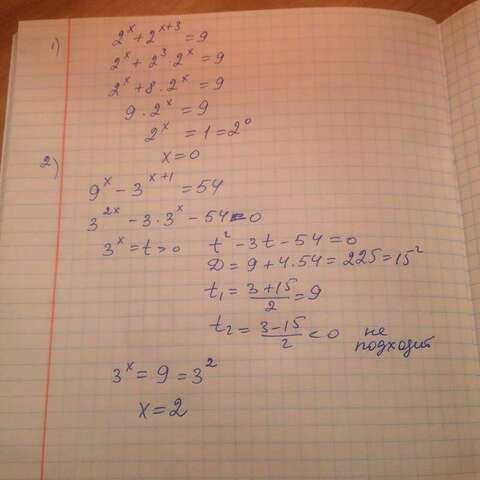 1) 2ˣ + 2ˣ⁺³ = 9
2ˣ + 2³ · 2ˣ = 9
2ˣ + 8 · 2ˣ = 9
9 · 2ˣ = 9
2ˣ = 1 = 2⁰
x = 0
2)
9ˣ − 3ˣ⁺¹ = 54
3²ˣ − 3 · 3ˣ − 54 = 0
3ˣ = t > 0 t² − 3t − 54 = 0
D = 9 + 4 · 54 = 225 = 15²
t₁ = (3+15)/2 = 9
t₂ = (3−15)/2 < 0 не подходит
3ˣ = 9 = 3²
x = 2